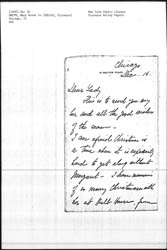 [1898] Dec 16
SMITH, Mary Rozet to [KELLEY, Florence]
Chicago, Ill
ALS
New York Public Library
Florence Kelley Papers
Chicago
Dec. 16.
Dear Lady
This is to send you my
love and all the good wishes
of the season —
I am afraid Christmas is
a time when it is especially
hard to get along without
Margaret — I have memories
of so many Christmases with
her at Hull House, from